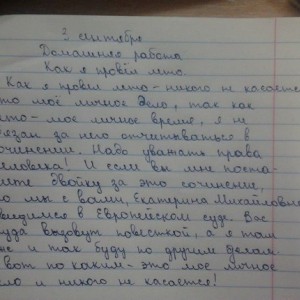 3 сентября
Домашняя работа
Как я провёл лето.
Как я провёл лето - никого не касается
это моё личное дело, так как
это - моё личное время, я не
обязан за него отчитываться в
сочинении. Надо уважать права
человека! И если вы мне поста-
вите двойку за это сочинение,
то мы с вами, Екатерина Михайловна
увидимся в Европейском суде. Вас
туда вызовут повесткой, а я там
уже и так буду по другим делам.
А вот по каким - это моё личное
дело и никого не касается!